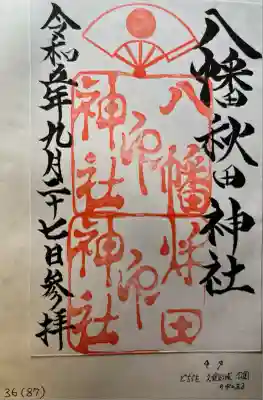 八幡秋田神社
令和五年九月二十七日参拝
八幡秋田
神社印
神社印
36(87)